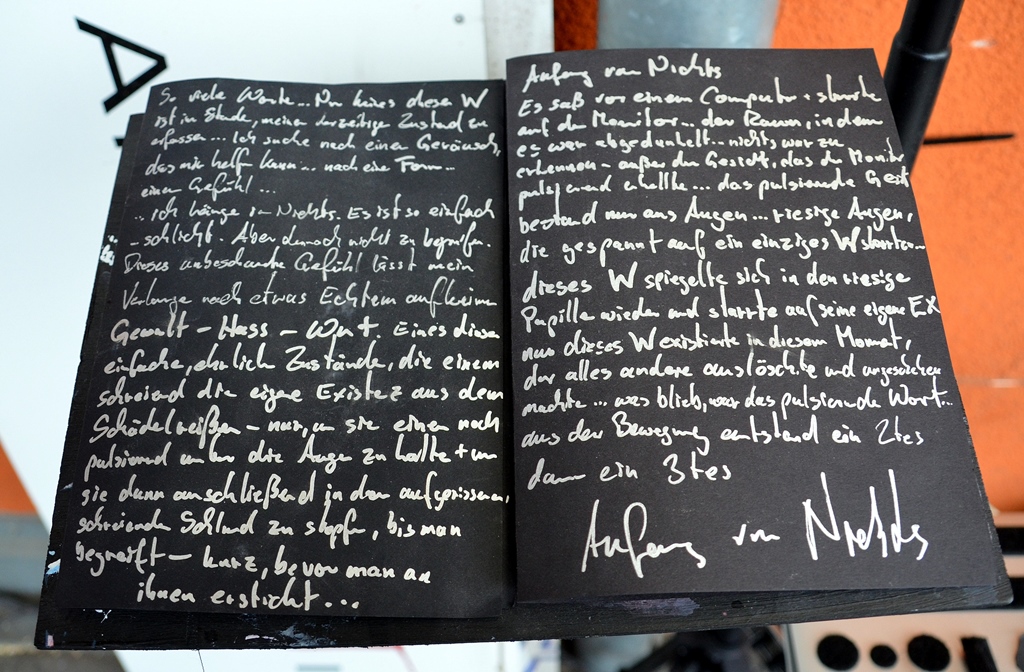 A
So viele Worte... Nur keines dieser W
ist im Stande, meinen derzeitigen Zustand zu
erfassen... Ich suche nach einem Geräusch,
das mir helfen kann... nach einer Form...
einem Gefühl...
... ich hänge im Nichts. Es ist so einfach
- schlicht. Aber dennoch nicht zu begreifen.
Dieses Gefühl lässt mein
Verlangen nach etwas Echtem aufkeimen
Gewalt – Hass – Wut. Eines dieser
einfachen, ehrlichen Zustände, die einem
schreiend die eigene Existenz aus dem
Schädel reißen – nur, um sie einem noch
pulsierend unter die Augen zu halten + um
sie dann anschließend in den aufgerissenen,
schreienden Schlund zu stopfen, bis man
begreift – kurz, bevor man an
ihnen erstickt...
Anfang vom Nichts
Es saß vor einem Computer + starrte
auf den Monitor... der Raum, in dem
es war abgedunkelt... nichts war zu
erkennen – außer dem Gesicht, das der Monitor
pulsierend erhellte... das pulsierende Gesicht
bestand nur aus Augen... riesige Augen,
die gespannt auf ein einziges W starrten...
dieses W spiegelte sich in den riesigen
Pupillen wieder und starrte auf seine eigene EX
nur dieses W existierte in diesem Moment,
der alles andere auslöschte und ungesehen
machte... was blieb, war das pulsierende Wort...
aus der Bewegung entstand ein 2tes
dann ein 3tes
Anfang vom Nichts